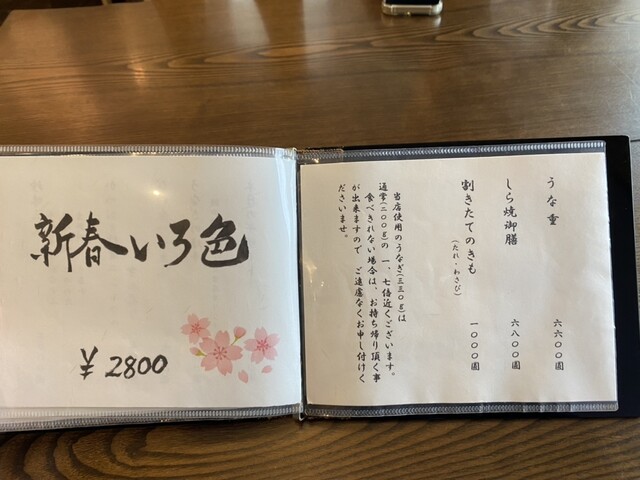 新春いろ色
¥2800
うな重 六六〇〇圓
しら焼御膳 六八〇〇圓
割きたてのきも 一〇〇〇圓
(たれ・わさび)
当店使用のうなぎ(三三〇g)は
通常(二〇〇g)の一、七倍近くございます。
食べきれない場合は、お持ち帰り頂く事
が出来ますので、ご遠慮なくお申し付けく
ださいませ。